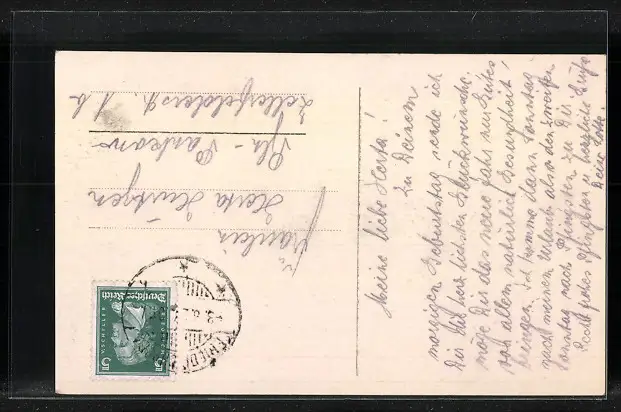 Meine liebe Herta!
Zu Deinem
morgigen Geburtstag sende ich
Dir die herzlichsten Glückwünsche.
Möge Dir das neue Jahr nur Gutes
vor allem natürlich Gesundheit
bringen. Ich komme dann Sonntag
nach meinem Urlaub also den zweiten
Sonntag nach Pfingsten zu Dir
Recht frohes Pfingsten u. herzliche Grüße
Deine Lotte.
Fräulein
Herta
Bln-Pankow
1b
Deutsches Reich
F.v.SCHILLER
5
5